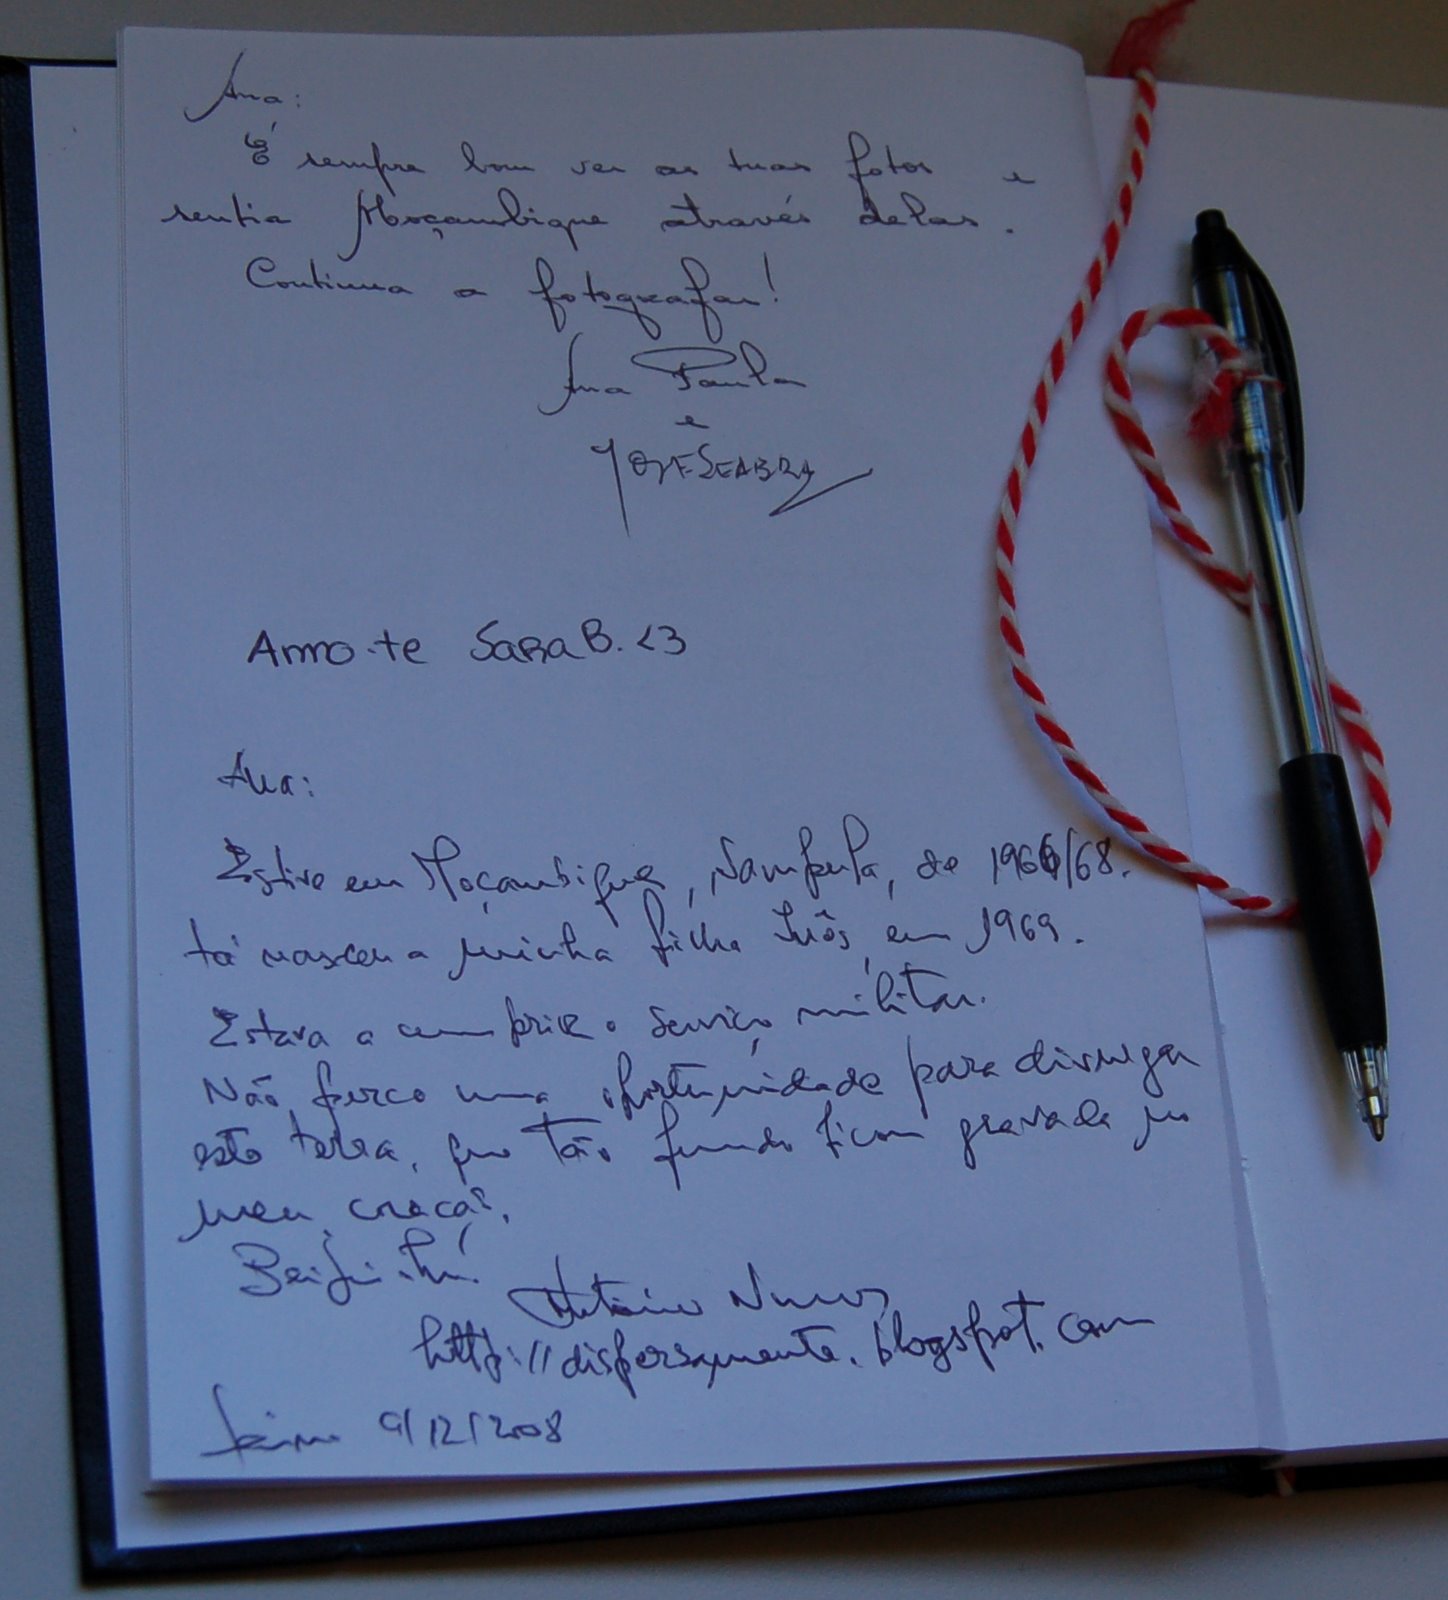 Ana:
É sempre bom ver as tuas fotos e
sentir Moçambique através delas.
Continua a fotografar!
Ana Paula
e
JOSÉ SEABRA
Amo-te SARA B. <3
Ana:
Estive em Moçambique, Nampula, de 1966/68.
Lá nasceu a minha filha Inês, em 1969.
Estava a cumprir o serviço militar.
Não perco uma oportunidade para divulgar
esta terra, que tão fundo ficou gravada no
meu coração.
Beijinhos
António Nunes
http://dispersamente.blogspot.com
9/12/2008